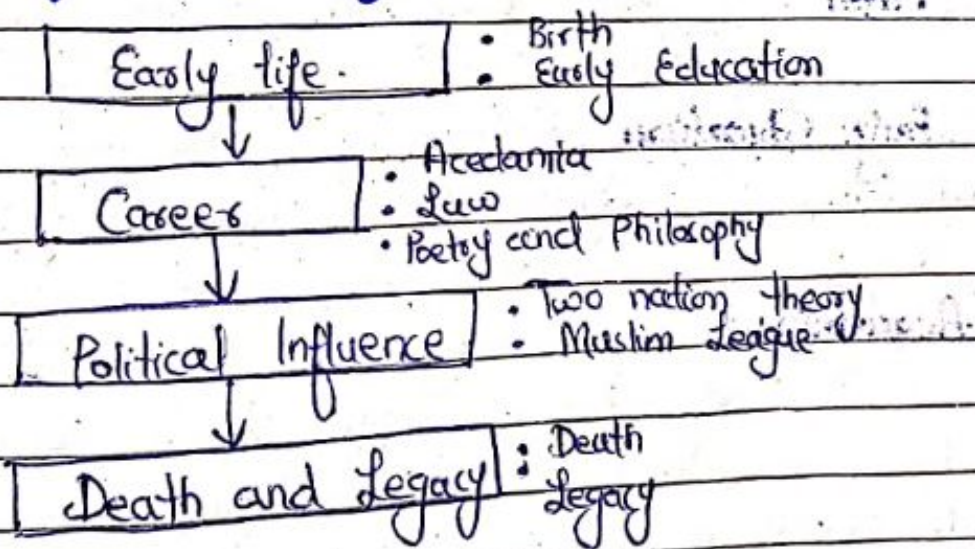 Early life.
• Birth
• Early Education
Career
• Acedamia
• Law
• Poetry and Philosophy
Political Influence
• Two nation theory
• Muslim League
Death and Legacy
• Death
• Legacy